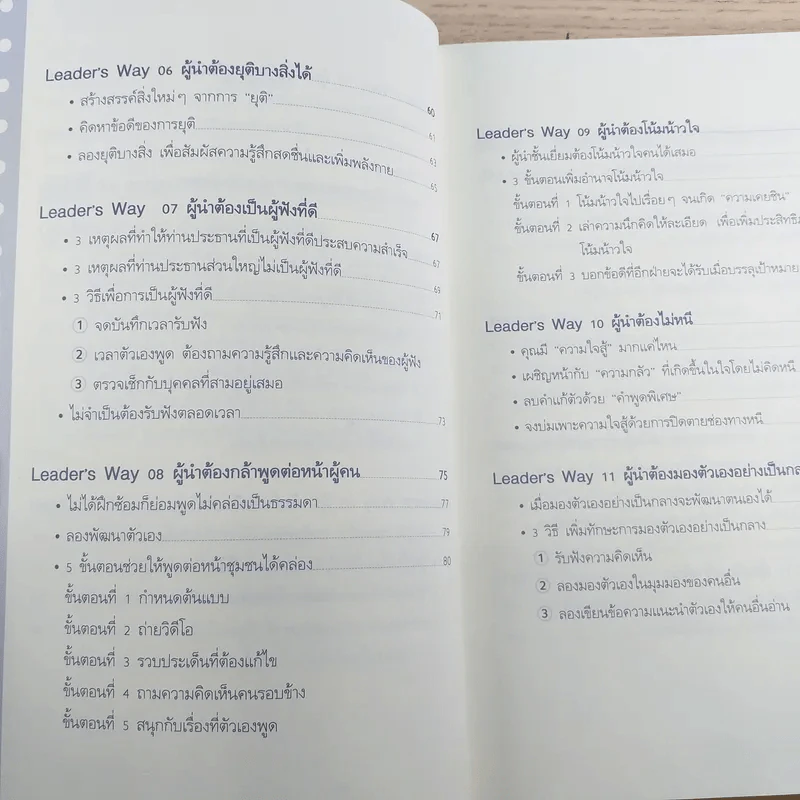 Leader's Way 06 ผู้นำต้องยุติบางสิ่งได้
• สร้างสรรค์สิ่งใหม่ๆ จากการ "ยุติ" 60
• คิดหาข้อดีของการยุติ 61
• ลองยุติบางสิ่ง เพื่อสัมผัสความรู้สึกสดชื่นและเพิ่มพลังกาย 63
65
Leader's Way 07 ผู้นำต้องเป็นผู้ฟังที่ดี 67
• 3 เหตุผลที่ทำให้ท่านประธานที่เป็นผู้ฟังที่ดีประสบความสำเร็จ 67
• 3 เหตุผลที่ท่านประธานส่วนใหญ่ไม่เป็นผู้ฟังที่ดี 69
• 3 วิธีเพื่อการเป็นผู้ฟังที่ดี 71
① จดบันทึกเวลารับฟัง
② เวลาตัวเองพูด ต้องถามความรู้สึกและความคิดเห็นของผู้ฟัง
③ ตรวจเช็กกับบุคคลที่สามอยู่เสมอ
• ไม่จำเป็นต้องรับฟังตลอดเวลา 73
Leader's Way 08 ผู้นำต้องกล้าพูดต่อหน้าผู้คน 75
• ไม่ได้ฝึกซ้อมก็ย่อมพูดไม่คล่องเป็นธรรมดา 77
• ลองพัฒนาตัวเอง 79
• 5 ขั้นตอนช่วยให้พูดต่อหน้าชุมชนได้คล่อง 80
ขั้นตอนที่ 1 กำหนดต้นแบบ
ขั้นตอนที่ 2 ถ่ายวิดีโอ
ขั้นตอนที่ 3 รวบประเด็นที่ต้องแก้ไข
ขั้นตอนที่ 4 ถามความคิดเห็นคนรอบข้าง
ขั้นตอนที่ 5 สนุกกับเรื่องที่ตัวเองพูด
Leader's Way 09 ผู้นำต้องโน้มน้าวใจ
• ผู้นำชั้นเยี่ยมต้องโน้มน้าวใจคนได้เสมอ
• 3 ขั้นตอนเพิ่มอำนาจโน้มน้าวใจ
ขั้นตอนที่ 1 โน้มน้าวใจไปเรื่อยๆ จนเกิด "ความเคยชิน"
ขั้นตอนที่ 2 เล่าความนึกคิดให้ละเอียด เพื่อเพิ่มประสิทธิ
โน้มน้าวใจ
ขั้นตอนที่ 3 บอกข้อดีที่อีกฝ่ายจะได้รับเมื่อบรรลุเป้าหมาย
Leader's Way 10 ผู้นำต้องไม่หนี
• คุณมี "ความใจสู้" มากแค่ไหน
• เผชิญหน้ากับ "ความกลัว" ที่เกิดขึ้นในใจโดยไม่คิดหนี
• ลบคำแก้ตัวด้วย "คำพูดพิเศษ"
• จงบ่มเพาะความใจสู้ด้วยการปิดตายช่องทางหนี
Leader's Way 11 ผู้นำต้องมองตัวเองอย่างเป็นกลา
• เมื่อมองตัวเองอย่างเป็นกลางจะพัฒนาตนเองได้
• 3 วิธี เพิ่มทักษะการมองตัวเองอย่างเป็นกลาง
① รับฟังความคิดเห็น
② ลองมองตัวเองในมุมมองของคนอื่น
③ ลองเขียนข้อความแนะนำตัวเองให้คนอื่นอ่าน